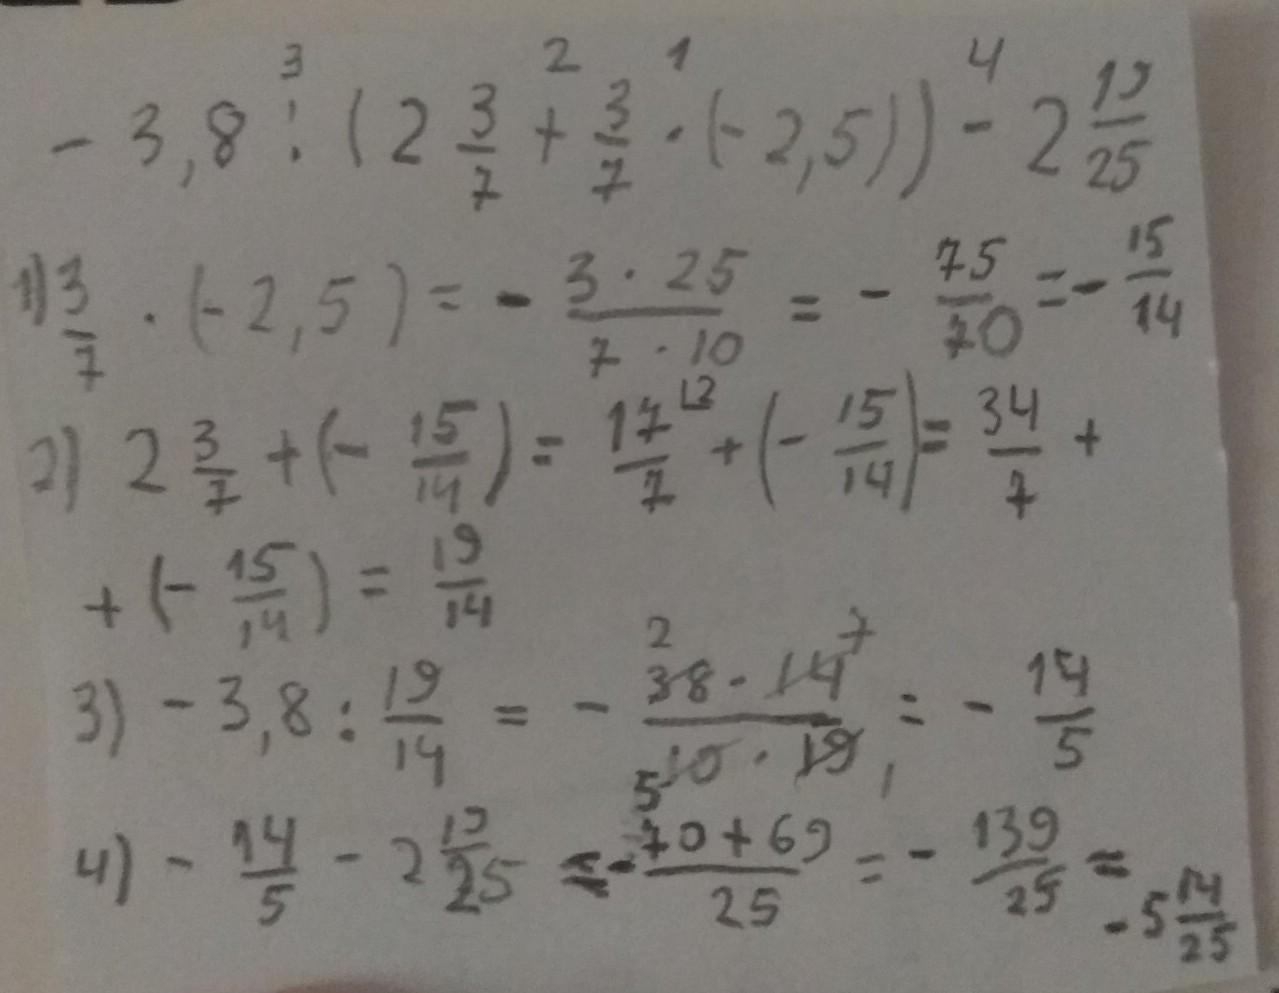 - 3,8 :³ (2 3/7 +² 3/7 ·¹ (- 2,5)) -⁴ 2 19/25
1) 3/7 · (- 2,5) = - 3 · 25 / 7 · 10 = - 75/70 = - 15/14
2) 2 3/7 + (- 15/14) = 17/7 |2 + (- 15/14) = 34/7 +
+ (- 15/14) = 19/14
3) - 3,8 : 19/14 = - 38 2 · 14 7 / 10 5 · 19 1 = - 14/5
4) - 14/5 - 2 19/25 = - 70 + 69 / 25 = - 139/25 = - 5 14/25